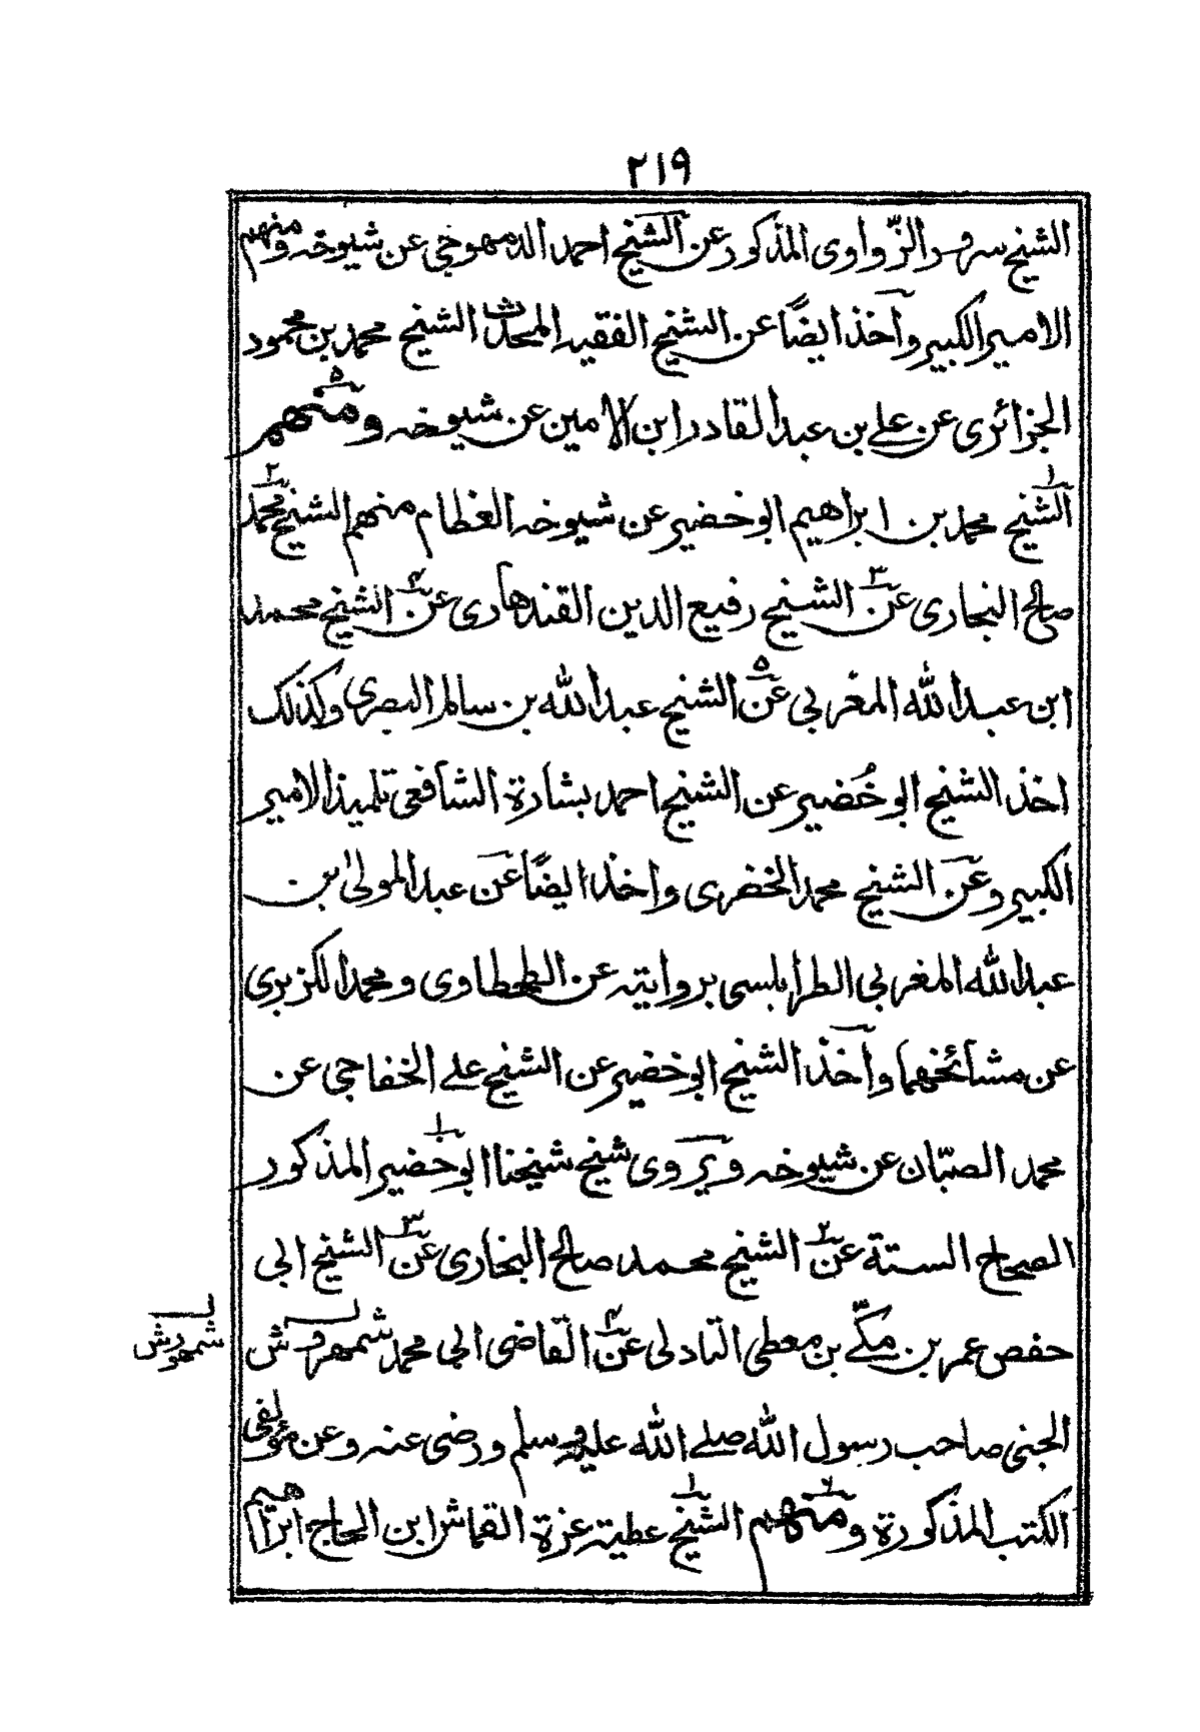 ٢١٩
الشيخ سرور الزّواوى المذكور عن الشيخ احمد الدمهوجى عن شيوخه ومنهم
الامير الكبير وآخذ ايضًا عن الشيخ الفقيه المحدث الشيخ محمد بن محمود
الجزائرى عن على بن عبد القادر ابن الامين عن شيوخه و٥منهم
١الشيخ محمد بن ابراهيم ابو خضير عن شيوخه العظام منهم الشيخ ٢محمد
صالح البخارى ٣عن الشيخ رفيع الدين القندهارى ٤عن الشيخ محمد
ابن عبد الله المغربى ٥عن الشيخ عبد الله بن سالم البصرى وكذلك
اخذ الشيخ ابو خُضير عن الشيخ احمد بشارة الشافعى تلميذ الامير
الكبير وعن الشيخ محمد الخضرى واخذ ايضًا عن عبد المولىٰ بن
عبد الله المغربى الطرابلسى بروايته عن الطحطاوى و محمد الكزبرى
عن مشائخهما وآخذ الشيخ ابو خضير عن الشيخ على الخفاجى عن
محمد الصبّان عن شيوخه ويروى شيخ شيخنا ١ابو خضير المذكور
الصحاح الستة ٢عن الشيخ محمد صالح البخارى ٣عن الشيخ ابى
حفص عمر بن مكّى بن معطى التادلى ٤عن القاضى ابى محمد شمهروش
شمهورش
الجنى صاحب رسول الله صلى الله عليه وسلم ورضى عنه وعن مؤلفى
الكتب المذكورة و٦منهم ١الشيخ عطية عزة القماش ابن الحاج ابراهيم